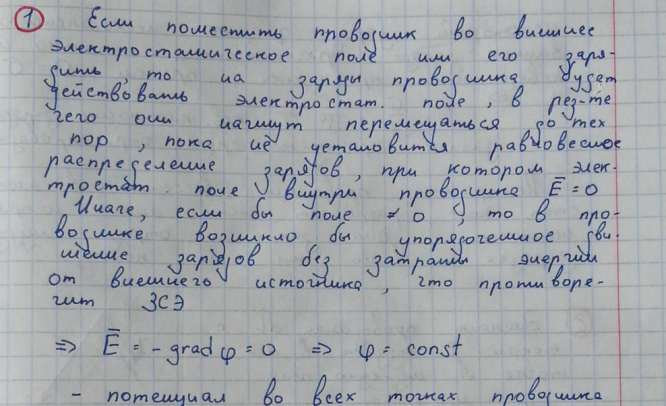 ① Если поместить проводник во внешнее
электростатическое поле или его заря-
дить, то на заряды проводника будет
действовать электростат. поле, в рез-те
чего они начнут перемещаться до тех
пор, пока не установится равновесное
распределение зарядов, при котором элек-
тростат. поле внутри проводника E̅ = 0
Иначе, если бы поле ≠ 0, то в про-
воднике возникло бы упорядоченное дви-
жение зарядов без затраты энергии
от внешнего источника, что противоре-
чит ЗСЭ
⇒ E̅ = - grad φ = 0 ⇒ φ = const
- потенциал во всех точках проводника